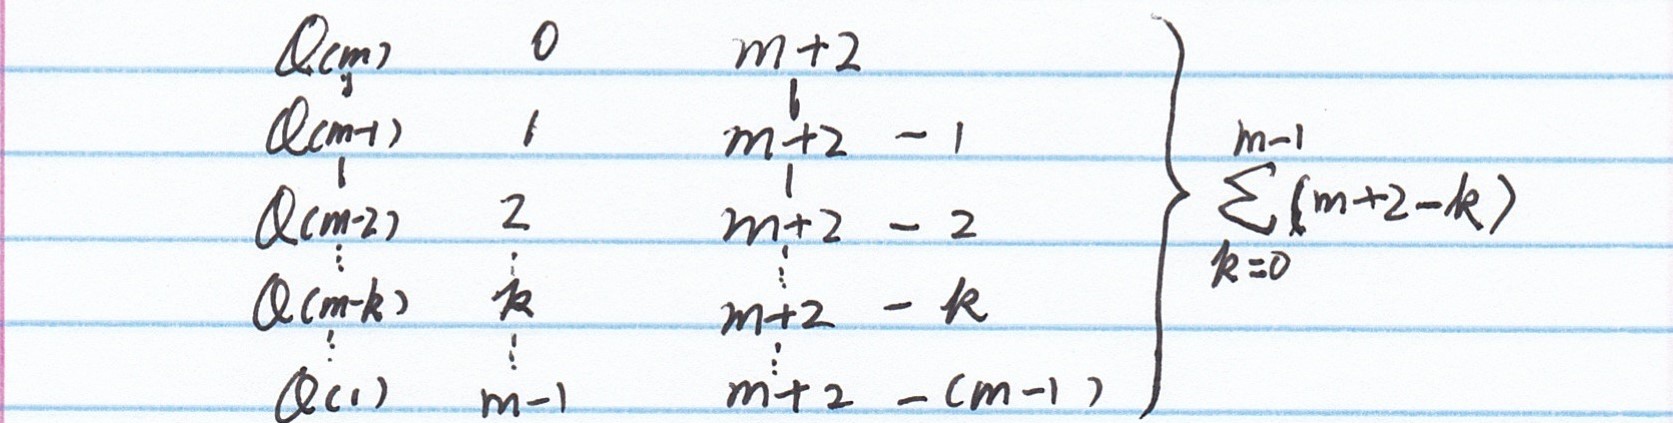 Q(m) 0 m+2
Q(m-1) 1 m+2 - 1
Q(m-2) 2 m+2 - 2
Q(m-k) k m+2 - k
Q(1) m-1 m+2 - (m-1)
m-1
∑(m+2-k)
k=0